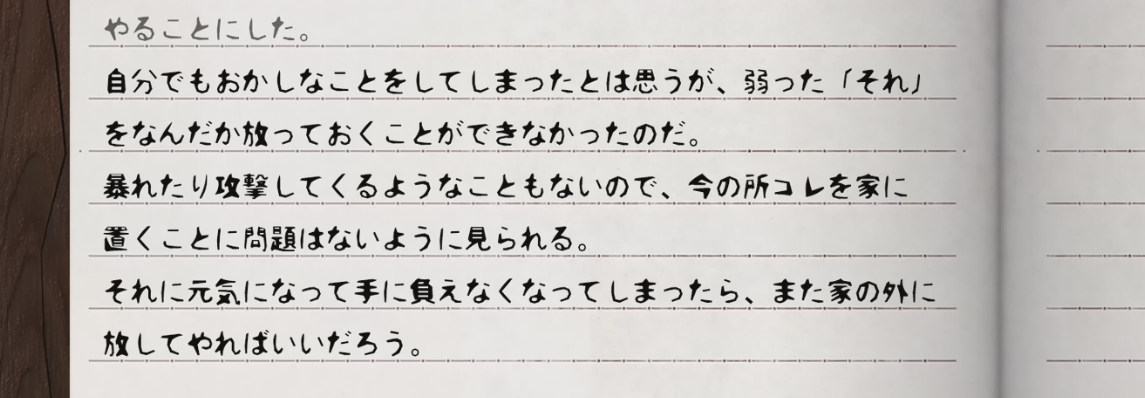 やることにした。
自分でもおかしなことをしてしまったとは思うが、弱った「それ」
をなんだか放っておくことができなかったのだ。
暴れたり攻撃してくるようなこともないので、今の所コレを家に
置くことに問題はないように見られる。
それに元気になって手に負えなくなってしまったら、また家の外に
放してやればいいだろう。